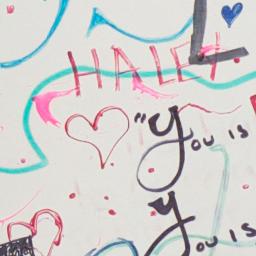 HALEY
"You is
You is